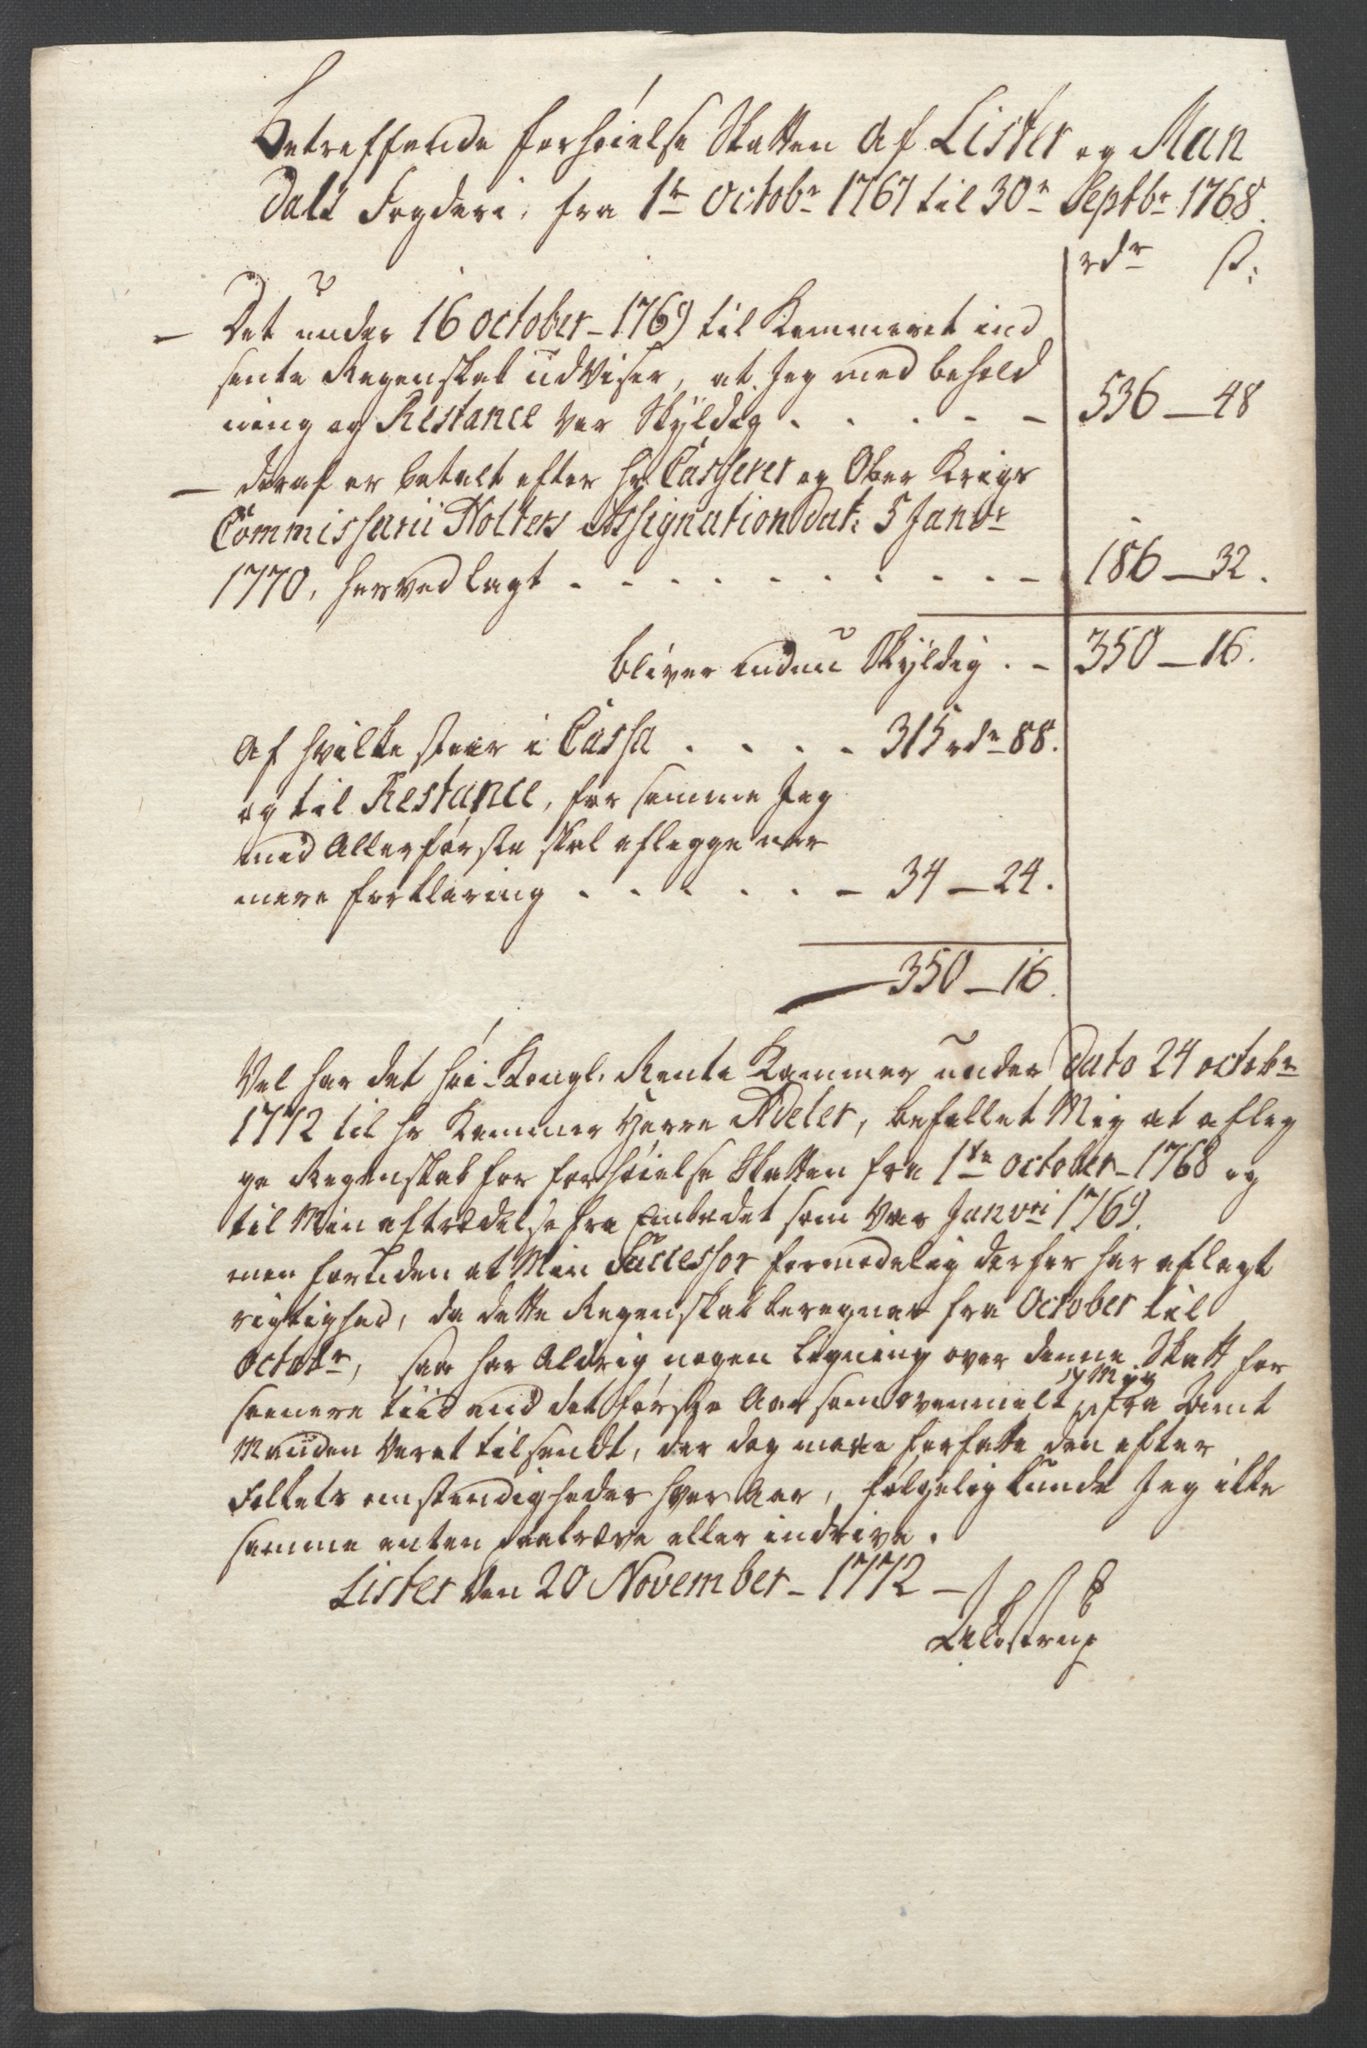 Betreffende forhöielse Skatten af Lister og Man
dals Fogderi, fra 1te octobr 1767 til 30te Septbr 1768.
rdr ß:
— Det under 16 october 1769 til Kammeret ind
sente Regenskab udviser, at Jeg med behold
ning og Restance var Skyldig . . . . . — 536 — 48
— deraf er betalt efter hr Casserer og Ober Krigs
Commissarii Nolters Assignation dat: 5 Janvr
1770, herved lagt . . . . . . . . . — 186 — 32.
bliver endnu Skyldig . — 350 — 16.
Af hvilke staar i Cassa . . . . 315 rdr 88.
og til Restance, for samme Jeg
med Allerförste skal aflegge nær
mere forklaring . . . . . . — 34 — 24.
350 — 16.
Vel har det höi Kongl. Rente Kammer under dato 24 octobr
1772 til hr Kammer Herre Adeler, befallet Mig at afleg
ge Regenskab for forhöielse Skatten fra 1te october 1768 og
til Min aftrædelse fra Embedet som var Janvri 1769.
men foruden at Min Successor formodelig derfor har aflagt
rigtighed, da dette Regenskab beregnes fra October til
octobr, saa har Aldrig nogen ligning over denne Skatt for
seenere tiid end det förste Aar som ovenmelt mig fra Amt
Manden været tilsendt, der dog maae forfatte den efter
Folkets omstendigheder hver Aar, fölgelig kunde Jeg ikke
samme enten fordre eller indrive.
Lister den 20 November 1772 —